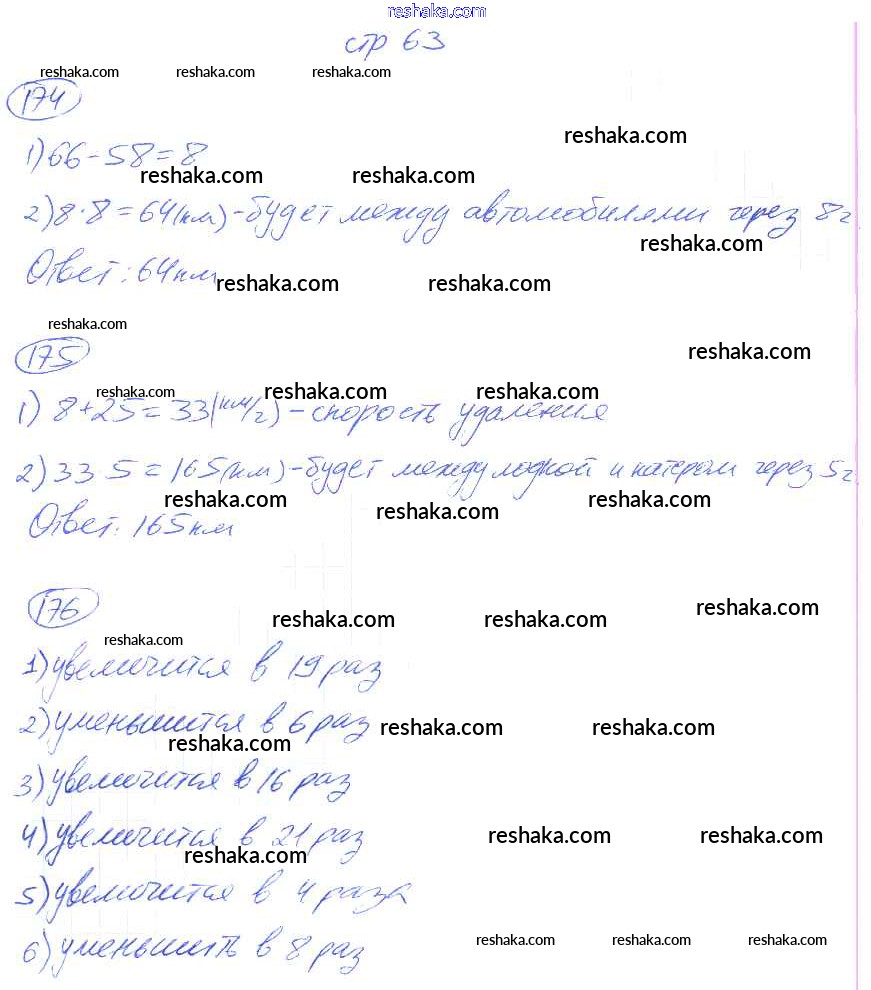 reshaka.com
стр 63
reshaka.com reshaka.com reshaka.com
174
reshaka.com
1) 66 - 58 = 8
reshaka.com reshaka.com
2) 8 · 8 = 64 (км) - будет между автомобилями через 8 г
reshaka.com
Ответ: 64 км
reshaka.com reshaka.com
reshaka.com
175
reshaka.com
reshaka.com reshaka.com reshaka.com
1) 8 + 25 = 33 (км/г) - скорость удаления
2) 33 · 5 = 165 (км) - будет между лодкой и катером через 5 г
reshaka.com reshaka.com reshaka.com
Ответ: 165 км
176
reshaka.com reshaka.com reshaka.com
reshaka.com
1) увеличится в 19 раз
2) уменьшится в 6 раз
reshaka.com reshaka.com reshaka.com
3) увеличится в 16 раз
4) увеличится в 21 раз
reshaka.com reshaka.com reshaka.com
5) увеличится в 4 раза
6) уменьшить в 8 раз
reshaka.com reshaka.com reshaka.com